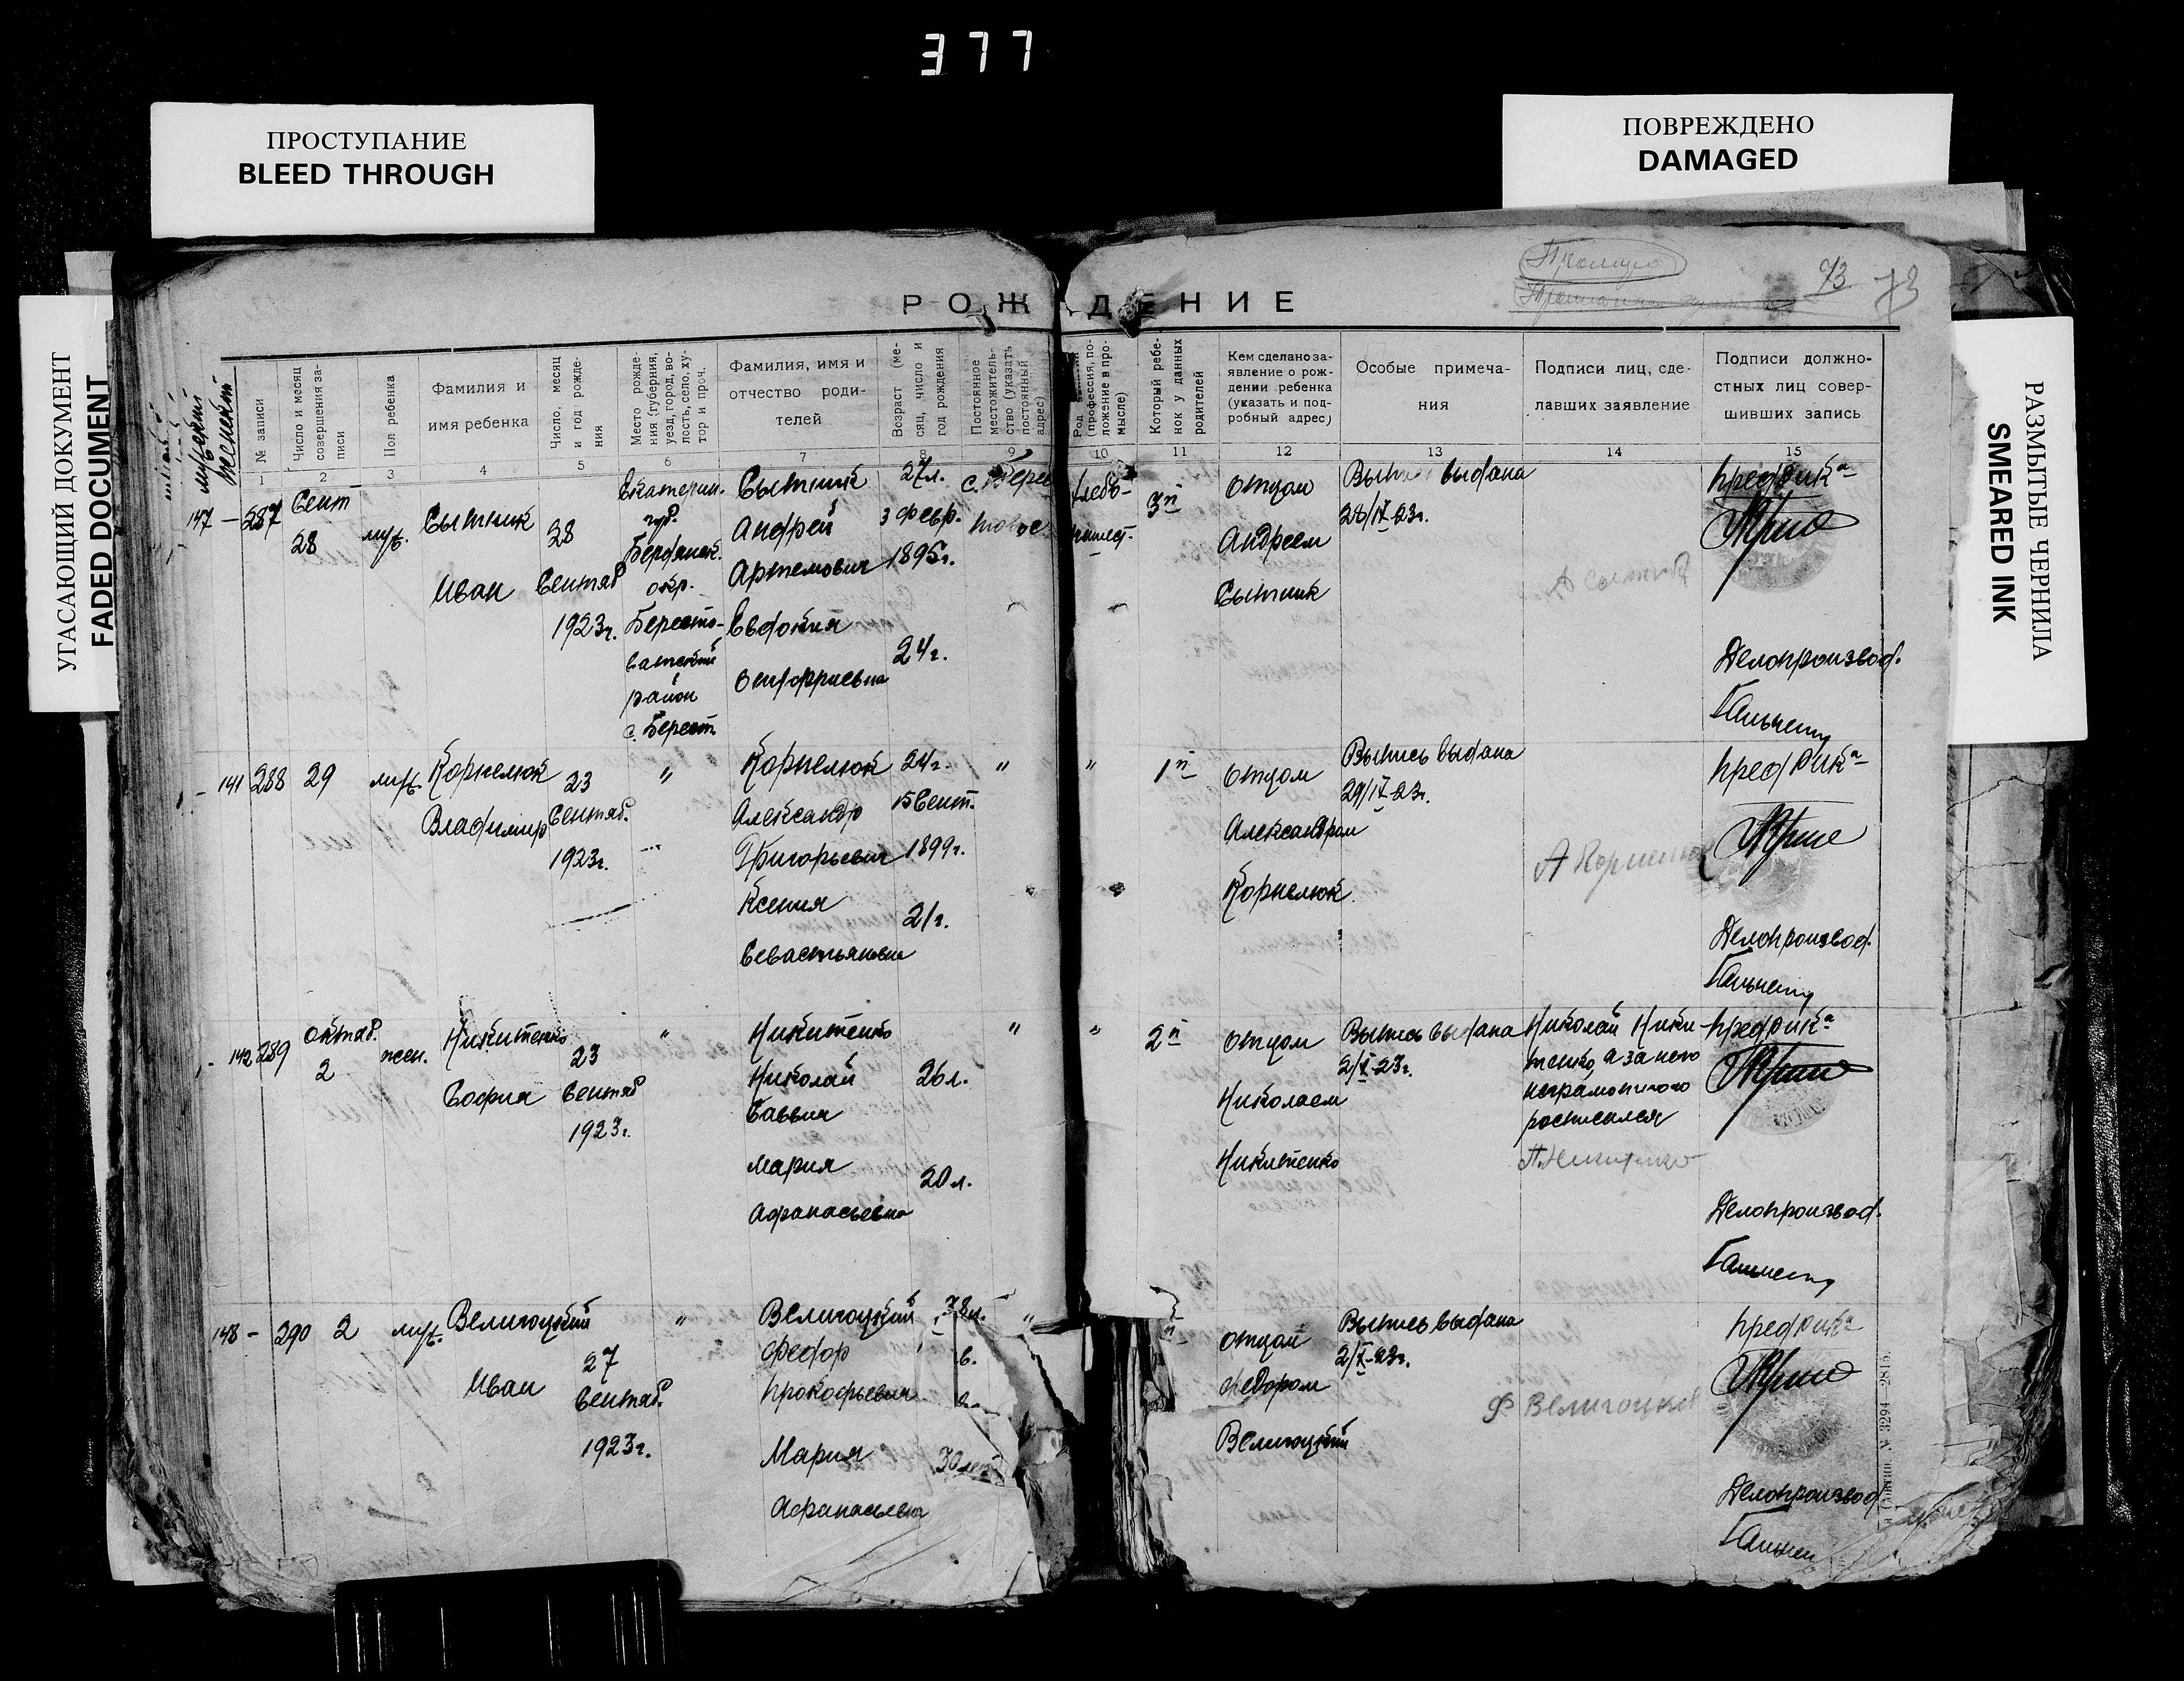 377
ПРОСТУПАНИЕ
BLEED THROUGH
ПОВРЕЖДЕНО
DAMAGED
УГАСАЮЩИЙ ДОКУМЕНТ
FADED DOCUMENT
РАЗМЫТЫЕ ЧЕРНИЛА
SMEARED INK
73
73
РОЖДЕНИЕ
мужской
женский
№ записи
Число и месяц
совершения за-
писи
Пол ребенка
Фамилия и
имя ребенка
Число, месяц
и год рожде-
ния
Место рожде-
ния (губерния,
уезд, город, во-
лость, село, ху-
тор и проч.
Фамилия, имя и
отчество роди-
телей
Возраст (ме-
сяц, число и
год рождения
Постоянное
местожитель-
ство (указать
постоянный
адрес)
Род
(профессия, по-
ложение в про-
мысле)
Который ребе-
нок у данных
родителей
Кем сделано за-
явление о рож-
дении ребенка
(указать и под-
робный адрес)
Особые примеча-
ния
Подписи лиц, сде-
лавших заявление
Подписи должно-
стных лиц совер-
шивших запись
1 2 3 4 5 6 7 8 9 10 11 12 13 14 15
147 - 287
Сент
28
муж.
Сытник
Иван
28
Сентяб
1923г.
Екатерин.
губ.
Бердянск.
окр.
Бересто-
ватский
район
с. Берест.
Сытник
Андрей
Артемович
Евдокия
Онуфриевна
27л.
3 февр.
1895г.
24г.
Хлебо-
пашест.
3й
отцом
Андреем
Сытник
Выпись выдана
28/IX-23г.
предРика
Делопроизвод.
- 141 288
29
муж.
Корнелюк
Владимир
23
Сентяб.
1923г.
"
Корнелюк
Александр
Григорьевич
Ксения
Севастьяновна
24г.
15 Сент.
1899г.
21г.
"
"
1й
отцом
Александром
Корнелюк
Выпись выдана
29/IX-23г.
предРика
Делопроизвод.
- 142 289
октяб.
2
жен.
Никитенко
София
23
Сентяб
1923г.
"
Никитенко
Николай
Саввич
Мария
Афанасьевна
26л.
20л.
"
"
2й
отцом
Николаем
Никитенко
Выпись выдана
2/X-23г.
Николай Ники-
тенко, а за него
неграмотного
росписался
предРика
Делопроизвод.
148 - 290
2
муж.
Велигоцкий
Иван
27
Сентяб.
1923г.
"
Велигоцкий
Федор
Прокофьевич
Мария
Афанасьевна
38л.
30 лет
"
отцом
Федором
Велигоцкий
Выпись выдана
2/X-23г.
Ф Велигоцкий
предРика
Делопроизвод